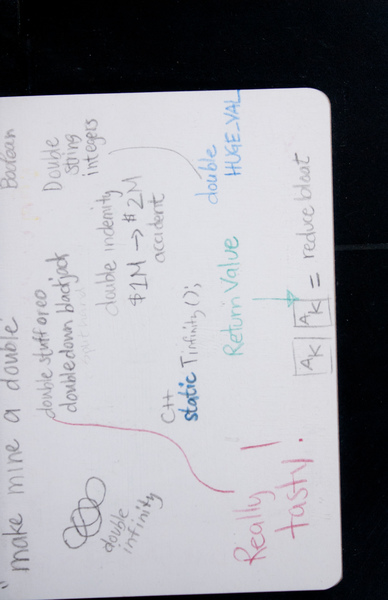 "make mine a double
Boolean
double stuff oreo
double down blackjack
Double
string
integers
double indemnity
$1M → $2M
accident
double
infinity
C++
static Tinfinity();
double
HUGE_VAL
Return Value
Really
tasty!
AK AK = reduce bloat